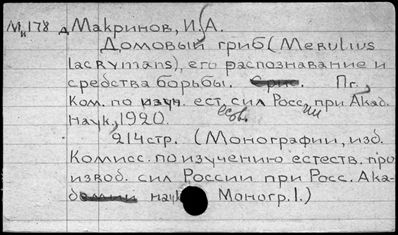 Мк178 д Макринов, И.А.
Домовый гриб (Merulius
lacrymans), его распознавание и
средства борьбы. Пг.,
Ком. по изуч. ест. сил России при Акад.
наук, 1920.
214стр. (Монографии, изд.
Комисс. по изучению естеств. про
извод. сил России при Росс. Ака-
д. наук Моногр. 1.)